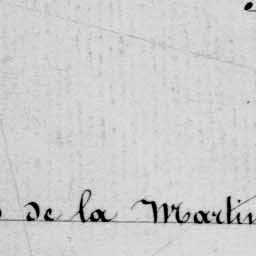 de la Martin